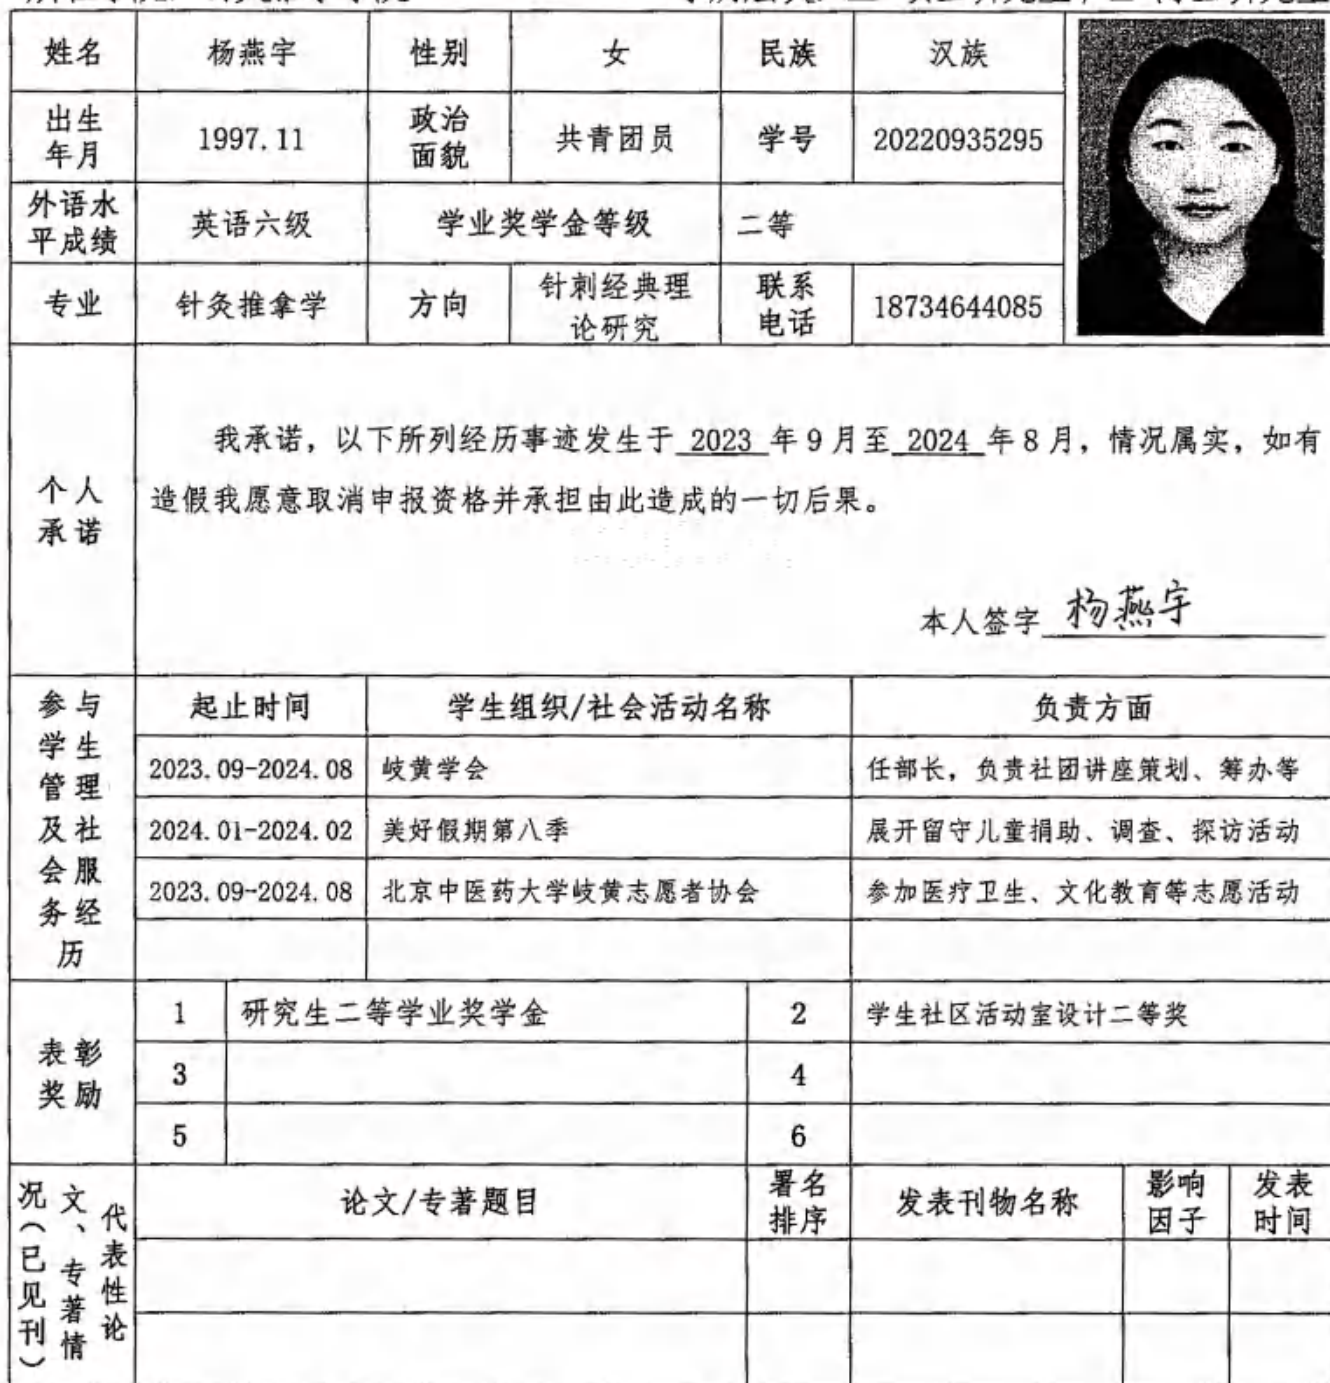 姓名 杨燕宇 性别 女 民族 汉族
出生年月 1997.11 政治面貌 共青团员 学号 20220935295
外语水平成绩 英语六级 学业奖学金等级 二等
专业 针灸推拿学 方向 针刺经典理论研究 联系电话 18734644085
个人承诺
我承诺，以下所列经历事迹发生于 2023 年 9 月至 2024 年 8 月，情况属实，如有
造假我愿意取消申报资格并承担由此造成的一切后果。
本人签字 杨燕宇
参与学生管理及社会服务经历
起止时间 学生组织/社会活动名称 负责方面
2023.09-2024.08 岐黄学会 任部长，负责社团讲座策划、筹办等
2024.01-2024.02 美好假期第八季 展开留守儿童捐助、调查、探访活动
2023.09-2024.08 北京中医药大学岐黄志愿者协会 参加医疗卫生、文化教育等志愿活动
表彰奖励
1 研究生二等学业奖学金 2 学生社区活动室设计二等奖
3 4
5 6
代表性论文、专著情况（已见刊）
论文/专著题目 署名排序 发表刊物名称 影响因子 发表时间